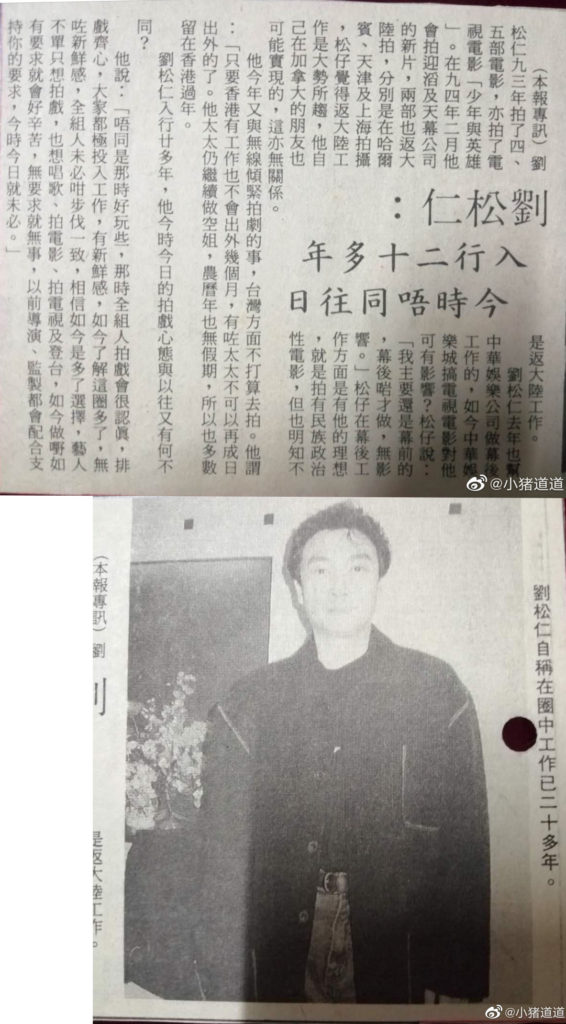 劉松仁：
入行二十多年
今時唔同往日
（本報專訊）劉
松仁九三年拍了四、
五部電影，亦拍了電
視電影「少年與英雄
」。在九四年二月他
會拍迎滔及天幕公司
的新片，兩部也返大
陸拍，分別是在哈爾
賓、天津及上海拍攝
，松仔覺得返大陸工
作是大勢所趨，他自
己在加拿大的朋友也
是返大陸工作。
劉松仁去年也幫
中華娛樂公司做幕後
工作的，如今中華娛
樂城搞電視電影對他
可有影響？松仔說：
「我主要還是幕前的
，幕後啱才做，無影
響。」松仔在幕後工
作方面是有他的理想
，就是拍有民族政治
性電影，但也明知不
可能實現的，這亦無關係。
他今年又與無線傾緊拍劇的事，台灣方面不打算去拍。他謂
：「只要香港有工作也不會出外幾個月，有咗太太不可以再成日
出外的了。他太太仍繼續做空姐，農曆年也無假期，所以也多數
留在香港過年。
劉松仁入行廿多年，他今時今日的拍戲心態與以往又有何不
同？
他說：「唔同是那時好玩些，那時全組人拍戲會很認真，排
戲齊心，大家都極投入工作，有新鮮感，如今了解這圈多了，無
咗新鮮感，全組人未必咁步伐一致，相信如今是多了選擇，藝人
不單只想拍戲，也想唱歌、拍電影、拍電視及登台，如今做嘢如
有要求就會好辛苦，無要求就無事，以前導演、監製都會配合支
持你的要求，今時今日就未必。」
@小猪道道
劉松仁自稱在圈中工作已二十多年。
（本報專訊）劉
是返大陸工作。
@小猪道道